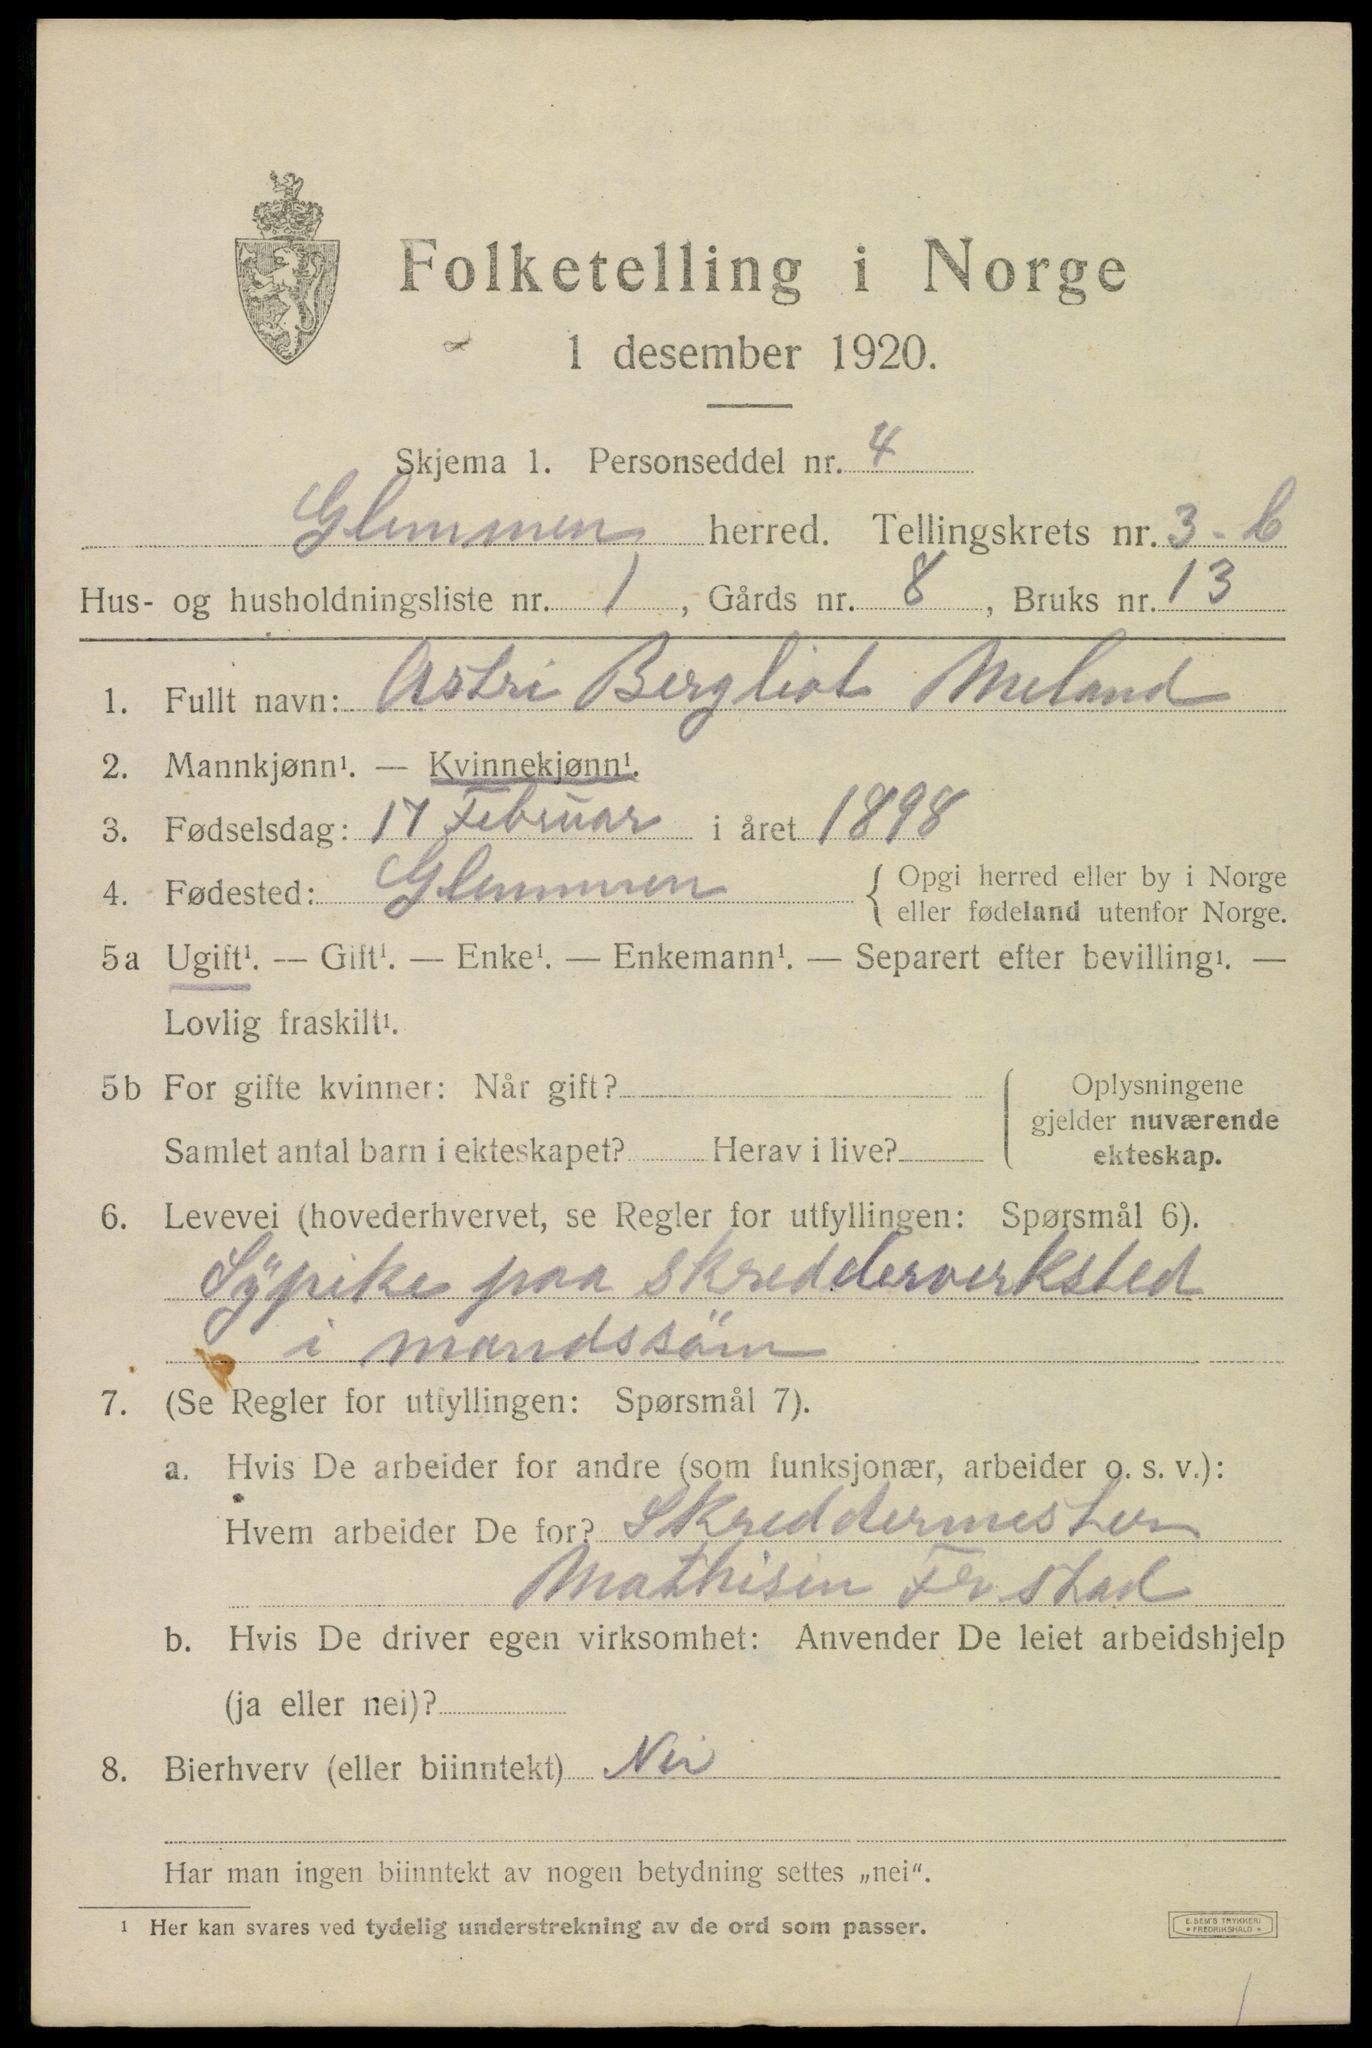 Folketelling i Norge
1 desember 1920.
Skjema 1. Personseddel nr. 4
Glemmen herred. Tellingskrets nr. 3-b
Hus- og husholdningsliste nr. 1, Gårds nr. 8, Bruks nr. 13
1. Fullt navn: Astri Bergliot Meland
2. Mannkjønn¹. — Kvinnekjønn¹.
3. Fødselsdag: 17 Februar i året 1898
4. Fødested: Glemmen { Opgi herred eller by i Norge
eller fødeland utenfor Norge.
5a Ugift¹. — Gift¹. — Enke¹. — Enkemann¹. — Separert efter bevilling¹. —
Lovlig fraskilt¹.
5b For gifte kvinner: Når gift?
Samlet antal barn i ekteskapet? Herav i live?
Oplysningene
gjelder nuværende
ekteskap.
6. Levevei (hovederhvervet, se Regler for utfyllingen: Spørsmål 6).
Sypike paa skredderverksted
i mandssöm
7. (Se Regler for utfyllingen: Spørsmål 7).
a. Hvis De arbeider for andre (som funksjonær, arbeider o. s. v.):
Hvem arbeider De for? Skreddermester
Mathisen Fr.stad
b. Hvis De driver egen virksomhet: Anvender De leiet arbeidshjelp
(ja eller nei)?
8. Bierhverv (eller biinntekt) Nei
Har man ingen biinntekt av nogen betydning settes „nei“.
¹ Her kan svares ved tydelig understrekning av de ord som passer.
E. SEM'S TRYKKERI
• FREDRIKSHALD •